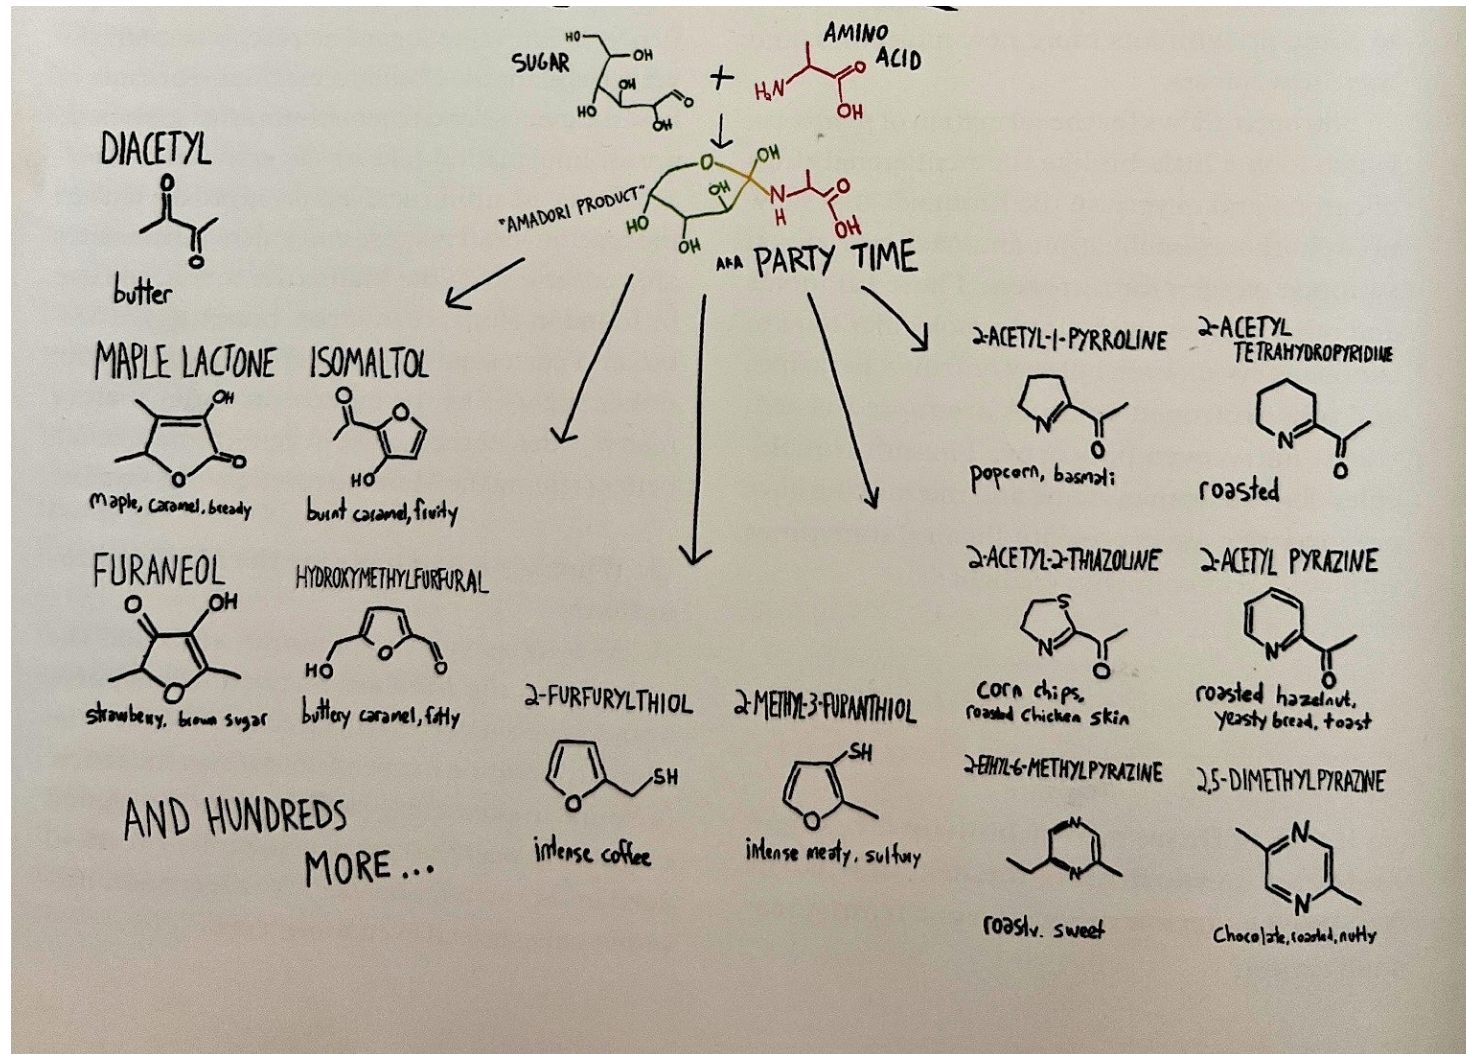 SUGAR
HO
OH
OH
HO
OH
O
+
AMINO
ACID
H₂N
O
OH
"AMADORI PRODUCT"
O
OH
OH
HO
OH
N
H
O
OH
AKA PARTY TIME
DIACETYL
O
O
butter
MAPLE LACTONE
OH
O
O
maple, caramel, bready
ISOMALTOL
O
O
HO
burnt caramel, fruity
FURANEOL
O
OH
O
strawberry, brown sugar
HYDROXYMETHYLFURFURAL
HO
O
O
buttery caramel, fatty
AND HUNDREDS
MORE...
2-FURFURYLTHIOL
SH
O
intense coffee
2-METHYL-3-FURANTHIOL
SH
O
intense meaty, sulfury
2-ACETYL-1-PYRROLINE
N
O
popcorn, basmati
2-ACETYL
TETRAHYDROPYRIDINE
N
O
roasted
2-ACETYL-2-THIAZOLINE
S
N
O
corn chips,
roasted chicken skin
2-ACETYL PYRAZINE
N
O
roasted hazelnut,
yeasty bread, toast
2-ETHYL-6-METHYLPYRAZINE
N
N
roasty. sweet
2,5-DIMETHYLPYRAZINE
N
N
Chocolate, roasted, nutty